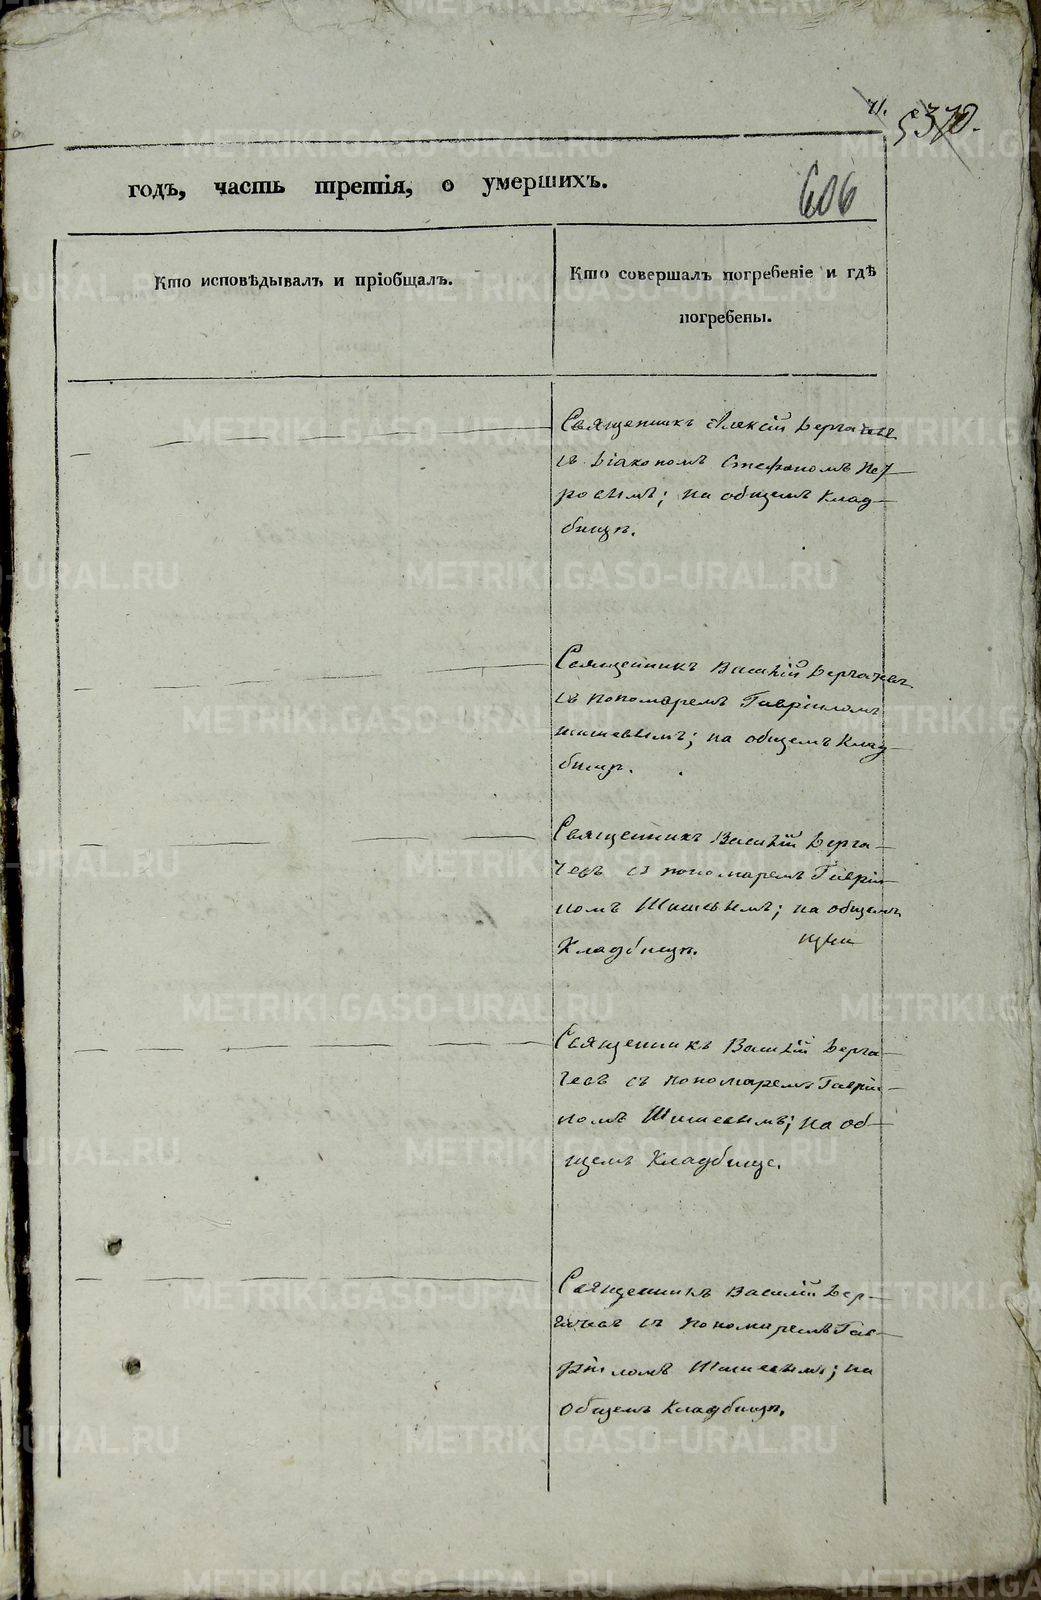 71.
5370.
606
годъ, часть третія, о умершихъ.
Кто исповѣдывалъ и пріобщалъ.
Кто совершалъ погребеніе и гдѣ
погребены.
Священникъ Алексій Дерга
съ Діакономъ Стефаномъ
на общемъ Клад-
бищѣ.
Священникъ Василій Дергачевъ
съ пономаремъ Гавріиломъ
Шишевымъ; на общемъ Клад-
бищѣ.
Священникъ Василій Дерга-
чевъ съ пономаремъ Гавріи-
ломъ Шишевымъ; на общемъ
Кладбищѣ.
Священникъ Василій Дерга-
чевъ съ пономаремъ Гавріи-
ломъ Шишевымъ; на об-
щемъ Кладбище.
Священникъ Василій Дер-
гачевъ съ пономаремъ Гав-
ріиломъ Шишевымъ; на
общемъ Кладбищѣ.
METRIKI.GASO-URAL.RU